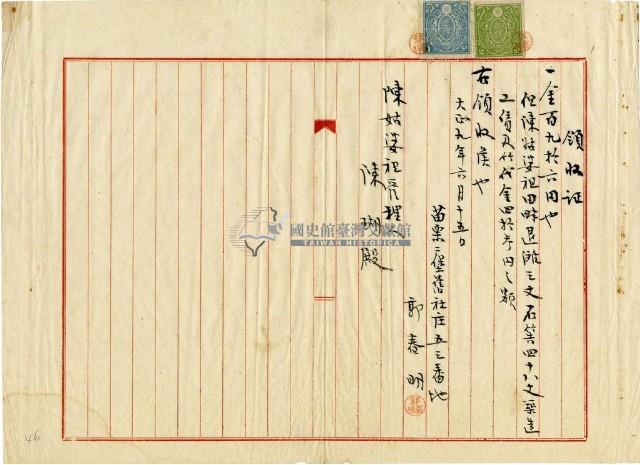 領收証
一金百九拾六円也
但陳姑婆祖田畔退 之文石 四十八丈築造
工債及 代金四拾参円之 
右領收候也
大正九年六月十五日
苗栗二堡舊社庄五三番地
郭春明
陳姑婆祖管理人
陳 瑚殿
國史館臺灣文獻館
TAIWAN HISTORICA
46